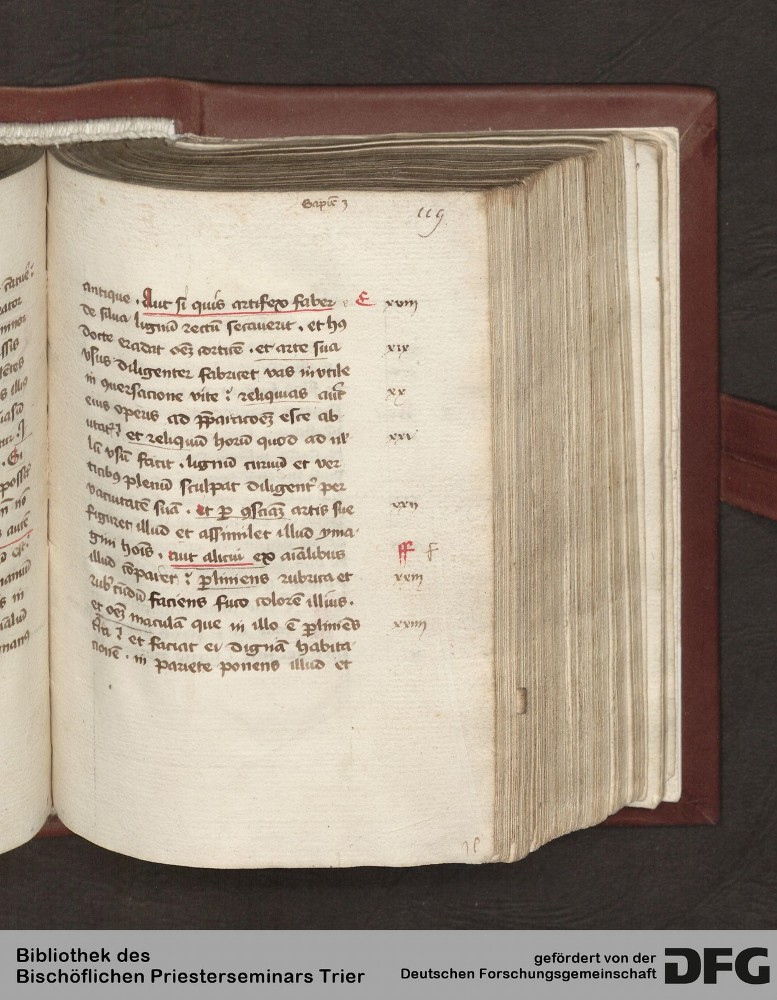 Sapiē 3
119
antique . Aut si quis artifex faber E xviii
de silua lignū rectū secauerit . et hꝰ
docte eradat oēꝫ corticē . et arte sua xix
vsus diligenter fabricet vas invtile
in ꝯuersacione vite : reliquias aūt xx
eius operis ad p̄paracōeꝫ esce ab
utat᷑ : et reliquū horū quod ad nl̄ xxv
lū vsū facit . lignū curuū et ver
ticibꝰ plenū sculpat diligent᷑ per
vacuitatē suā . et ꝑ ꝯsciāꝫ artis sue xxii
figuret illud et assimilet illud yma
gini hoīs . aut alicui ex aīalibus ff f
illud cōparet : ꝑliniens rubrica et xxiii
rubicūdū faciens fuco colorē illius .
et oēꝫ maculam que in illo ē ꝑliniēs xxiiii
et faciat ei dignā habita
cionē . in pariete ponens illud et
Bibliothek des
Bischöflichen Priesterseminars Trier
gefördert von der
Deutschen Forschungsgemeinschaft
DFG